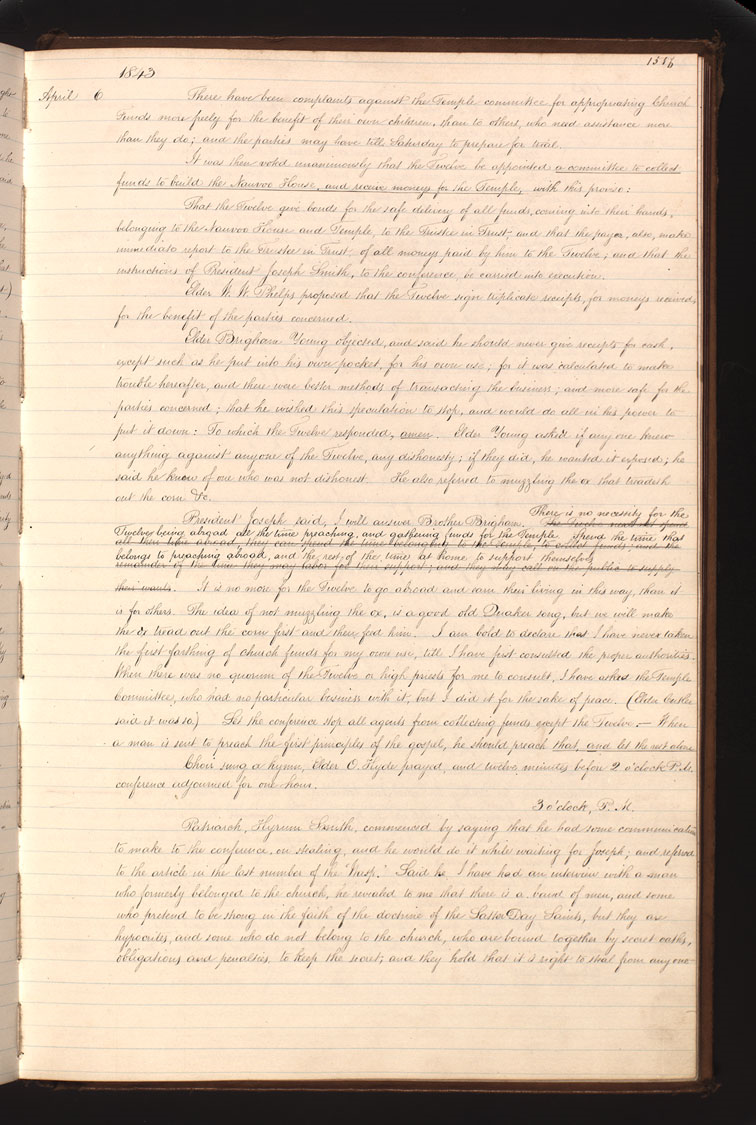 1516
1843
April 6 There have been complaints against the Temple committee for appropriating Church
funds more freely for the benefit of their own children, than to others, who need assistance more
than they do; and the parties may have till Saturday to prepare for trial.
It was then voted unanimously that the Twelve be appointed a committee to collect
funds to build the Nauvoo House, and receive moneys for the Temple, with this proviso:
That the Twelve give bonds for the safe delivery of all funds, coming into their hands,
belonging to the Nauvoo House and Temple, to the Trustee in Trust; and that the payor, also, make
immediate report to the Trustee in Trust, of all moneys paid by him to the Twelve; and that the
instructions of President Joseph Smith, to the conference, be carried into execution.
Elder W. W. Phelps proposed that the Twelve sign triplicate receipts, for moneys received,
for the benefit of the parties concerned.
Elder Brigham Young objected, and said he should never give receipts for cash,
except such as he put into his own pocket, for his own use; for it was calculated to make
trouble hereafter, and there were better methods of transacting the business; and more safe for the
parties concerned; that he wished this speculation to stop, and would do all in his power to
put it down: To which the Twelve responded, amen. Elder Young asked if any one knew
anything against any one of the Twelve, any dishonesty; if they did, he wanted it exposed; he
said he knew of one who was not dishonest. He also referred to muzzling the ox that treadeth
out the corn &c.
President Joseph said, I will answer Brother Brigham. There is no necessity for the
Twelve being abroad all the time preaching, and gathering funds for the Temple. Spend the time that
belongs to preaching abroad, and the rest of the time at home to support themselves
remainder of the time they may labor for their support; and they may call on the public to supply
their wants. It is no more for the Twelve to go abroad and earn their living in this way, than it
is for others. The idea of not muzzling the ox, is a good old Quaker song, but we will make
the ox tread out the corn first and then feed him. I am bold to declare that I have never taken
the first farthing of church funds for my own use, till I have first consulted the proper authorities.
When there was no quorum of the Twelve or high priests for me to consult, I have asked the Temple
Committee, who had no particular business with it, but I did it for the sake of peace. (Elder Cutler
said it was so.) Let the conference stop all agents from collecting funds except the Twelve. — When
a man is sent to preach the first principles of the gospel, he should preach that, and let the rest alone
Choir sung a hymn, Elder O. Hyde prayed, and twelve minutes before 2 o'clock P.M.
conference adjourned for one hour.
3 o'clock, P. M.
Patriarch, Hyrum Smith, commenced by saying that he had some communication
to make to the conference, on stealing, and he would do it while waiting for Joseph; and referred
to the article in the last number of the "Wasp." Said he, I have had an interview with a man
who formerly belonged to the church, he revealed to me that there is a band of men, and some
who pretend to be strong in the faith of the doctrine of the Latter Day Saints, but they are
hypocrites, and some who do not belong to the church, who are bound together by secret oaths,
obligations and penalties, to keep the secret; and they hold that it is right to steal from any one